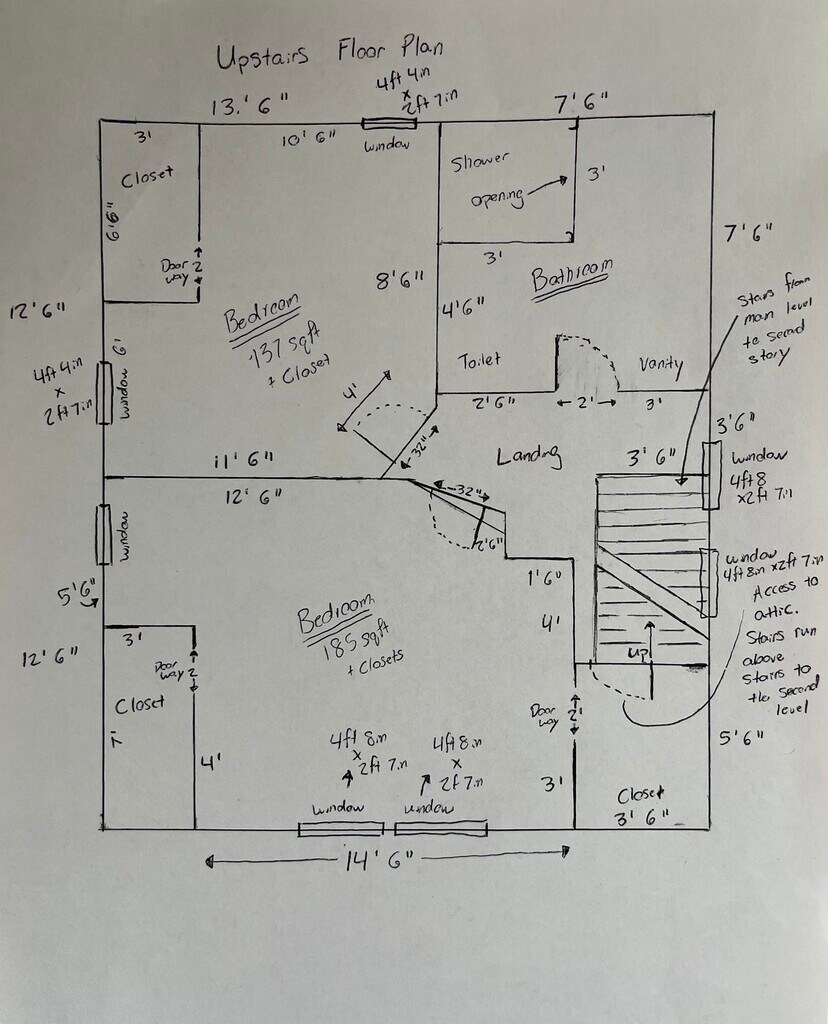 Upstairs Floor Plan
4ft 4in
x
2ft 7in
13.' 6"
7'6"
3'
10' 6"
window
Closet
Shower
opening
3'
6'6"
3'
7'6"
Door 2
way
8'6"
4'6"
Bathroom
Bedroom
137 sqft
+ Closet
12'6"
Stairs from
main level
to second
story
6'
4ft 4in
x
2ft 7in
window
Toilet
Vanity
4'
2'6"
2'
3'
32"
3'6"
Landing
11' 6"
3' 6"
window
4ft 8
x2ft 7in
12' 6"
32"
window
2'6"
window
4ft 8in x2ft 7in
5'6"
1'6"
Access to
attic.
Stairs run
above
stairs to
the second
level
Bedroom
185 sqft
+ Closets
4'
12' 6"
3'
up
Door 2
way
Closet
Door 2'
way
7'
4'
4ft 8in
x
2ft 7in
4ft 8in
x
2ft 7in
5'6"
3'
window
window
Closet
3' 6"
14' 6"